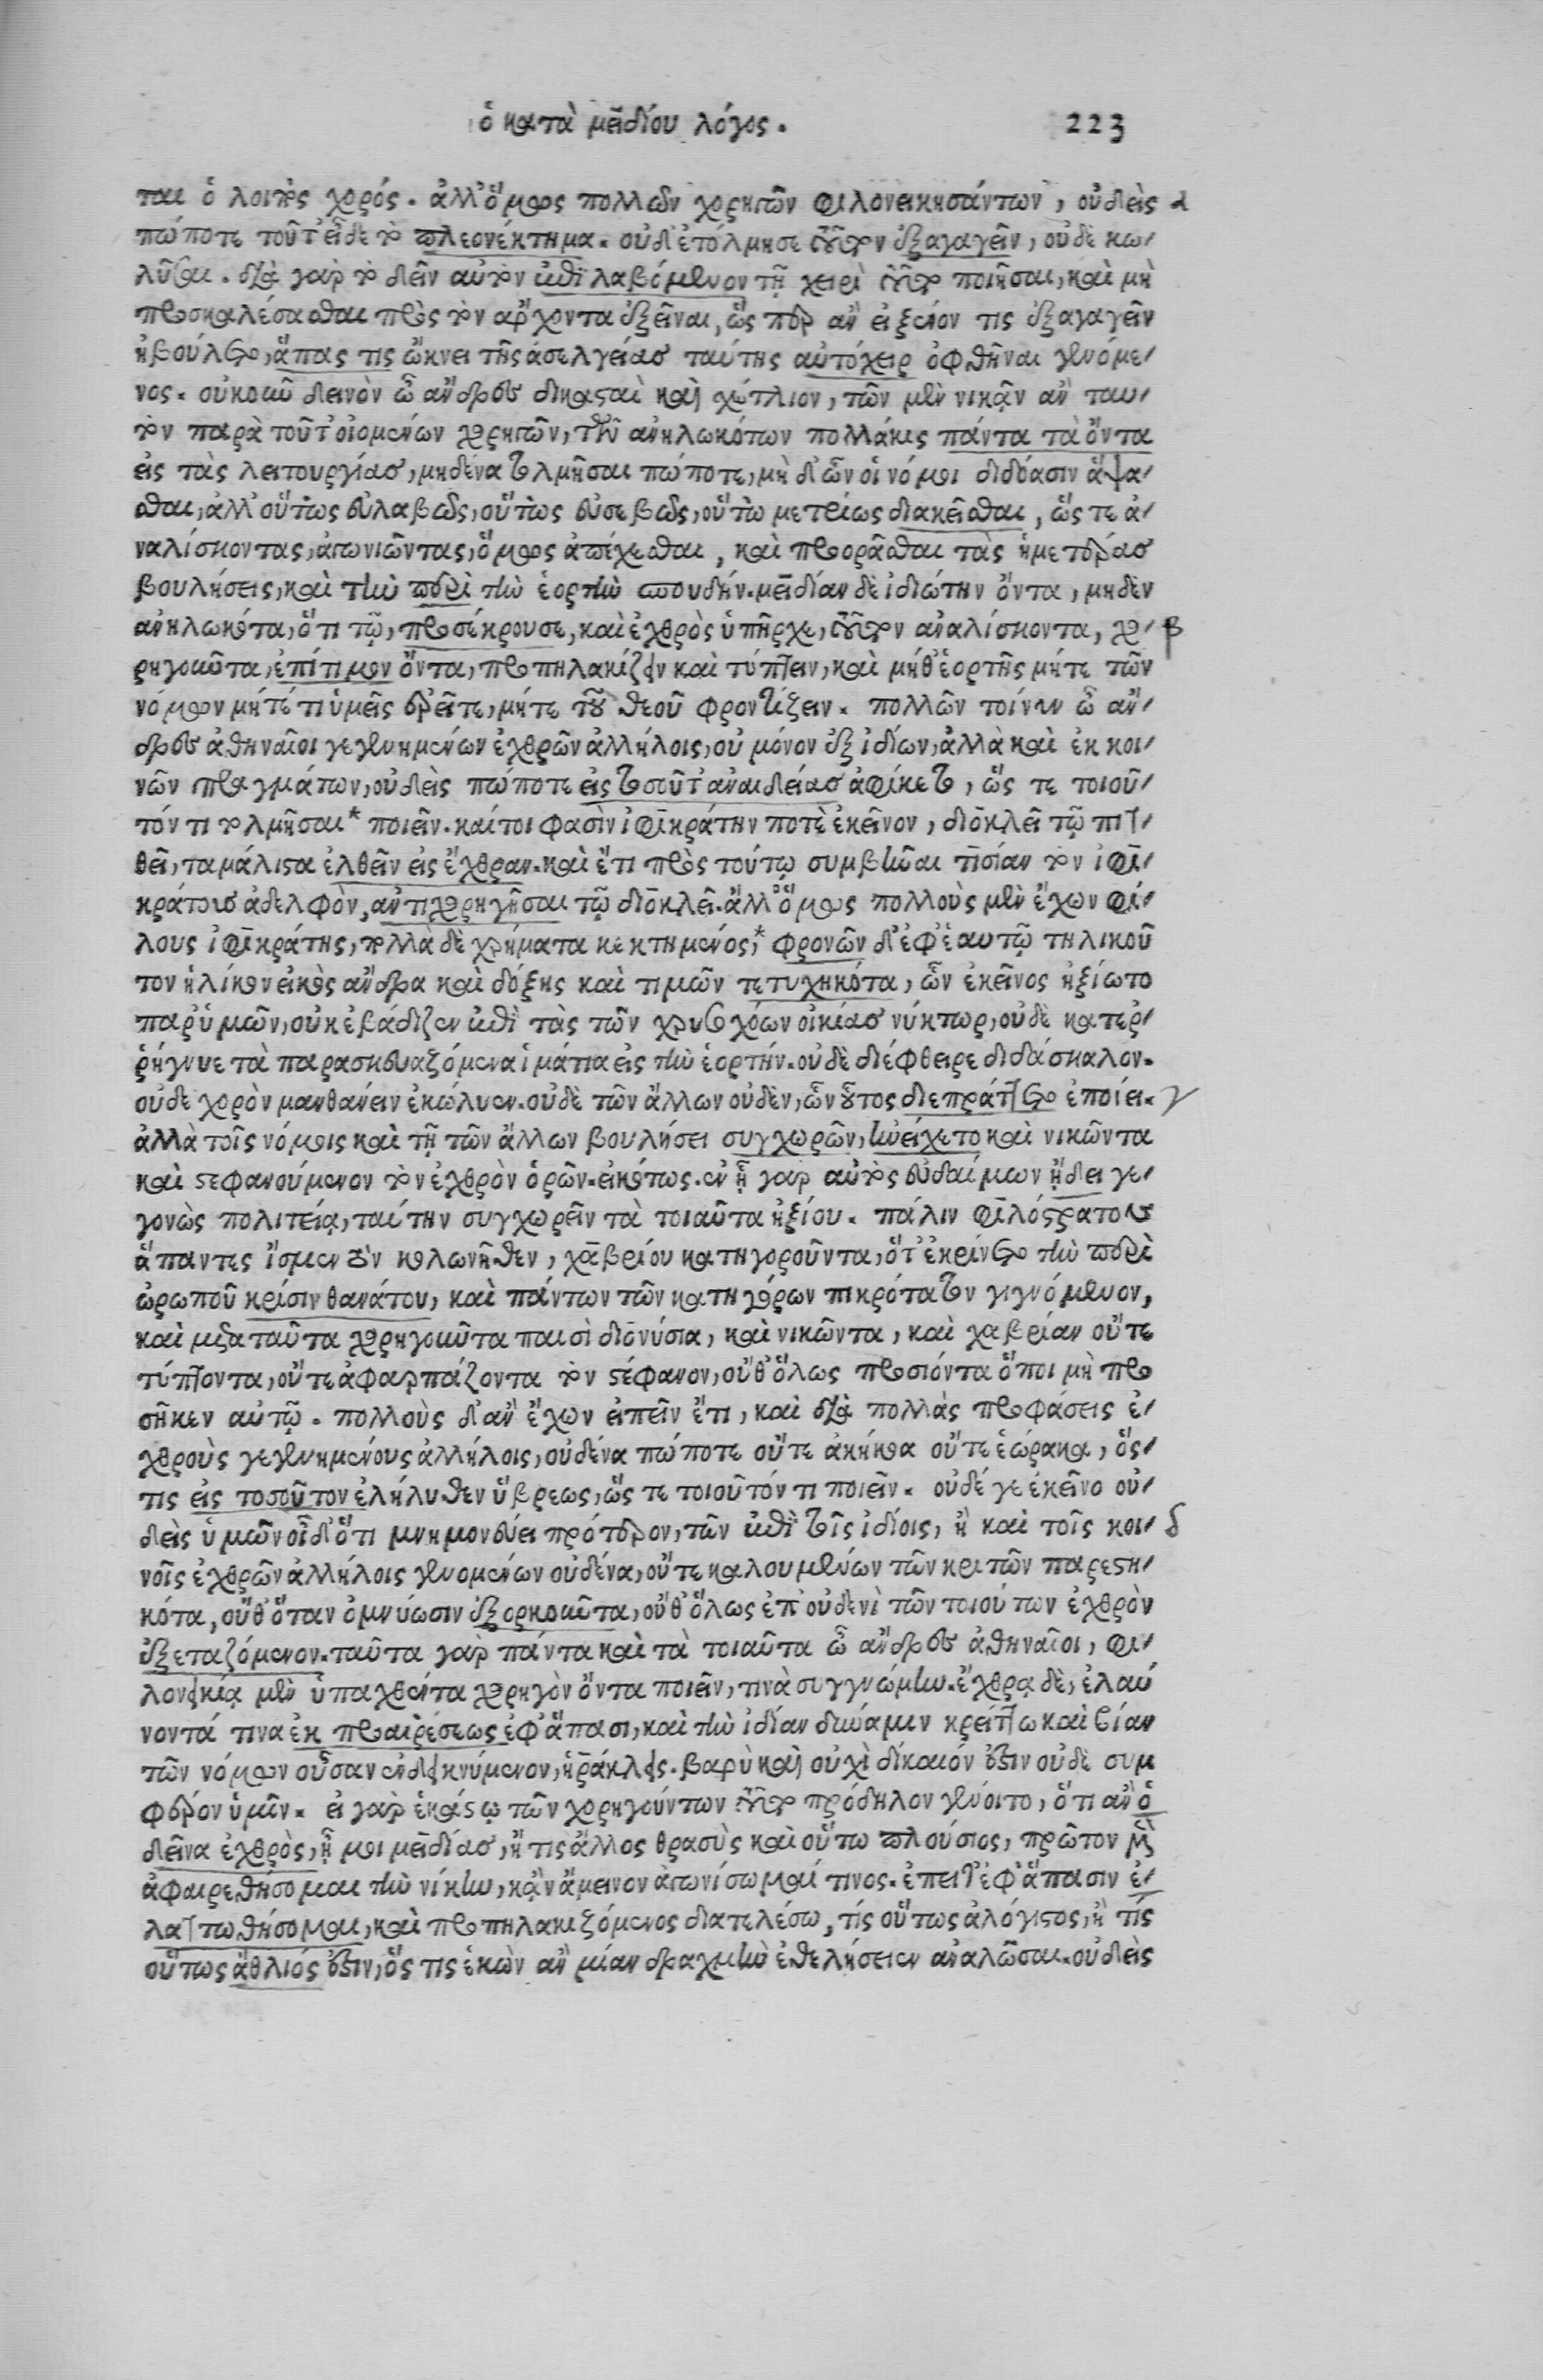 ὁ κατὰ μειδίου λόγος. 223
ται ὁ λοιπὸς χορός. ἀλλ' ὅμως πολλῶν χορηγῶν φιλονεικησάντων, οὐδεὶς α
πώποτε τοῦτ' εἶδε τὸ πλεονέκτημα. οὐδ' ἐτόλμησε τοῦτον ἐξαγαγεῖν, οὐδὲ κω-
λῦσαι. διὰ γὰρ τὸ δεῖν αὐτὸν ἐπιλαβόμενον τῇ χειρὶ τοῦτο ποιῆσαι, καὶ μὴ
προσκαλέσασθαι πρὸς τὸν ἄρχοντα ἐξεῖναι, ὥς περ ἂν εἰ ξένον τις ἐξαγαγεῖν
ἠβούλετο, ἅπας τις ὤκνει τῆς ἀσελγείας ταύτης αὐτόχειρ ὀφθῆναι γενόμε-
νος. οὐκοῦν δεινὸν ὦ ἄνδρες δικασταὶ καὶ σχέτλιον, τῶν μὲν νικᾷν ἂν ταυ-
τὸν παρὰ τοῦτ' οἰομένων χορηγῶν, τῶν ἀνηλωκότων πολλάκις πάντα τὰ ὄντα
εἰς τὰς λειτουργίας, μηδένα τολμῆσαι πώποτε, μὴ δ' ὧν οἱ νόμοι διδόασιν ἅψα-
σθαι, ἀλλ' οὕτως εὐλαβῶς, οὕτως εὐσεβῶς, οὕτω μετρίως διακεῖσθαι, ὥς τε ἀ-
ναλίσκοντας, ἀγωνιῶντας, ὅμως ἀπέχεσθαι, καὶ προορᾶσθαι τὰς ἡμετέρας
βουλήσεις, καὶ τὴν περὶ τὴν ἑορτὴν σπουδήν. μειδίαν δὲ ἰδιώτην ὄντα, μηδὲν
ἀνηλωκότα, ὅτι τῷ, προσέκρουσε, καὶ ἐχθρὸς ὑπῆρχε, τοῦτον ἀναλίσκοντα, χο- β
ρηγοῦντα, ἐπίτιμον ὄντα, προπηλακίζειν καὶ τύπτειν, καὶ μήθ' ἑορτῆς μήτε τῶν
νόμων μήτέ τι ὑμεῖς ἐρεῖτε, μήτε τοῦ θεοῦ φροντίζειν. πολλῶν τοίνυν ὦ ἄν-
δρες ἀθηναῖοι γεγενημένων ἐχθρῶν ἀλλήλοις, οὐ μόνον ἐξ ἰδίων, ἀλλὰ καὶ ἐκ κοι-
νῶν πραγμάτων, οὐδεὶς πώποτε εἰς τοσοῦτ' ἀναιδείας ἀφίκετο, ὥς τε τοιοῦ-
τόν τι τολμῆσαι* ποιεῖν. καίτοι φασὶν ἰφικράτην ποτὲ ἐκεῖνον, διοκλεῖ τῷ πιτ-
θεῖ, τα μάλιστα ἐλθεῖν εἰς ἔχθραν. καὶ ἔτι πρὸς τούτῳ συμβῆναι τισίαν τὸν ἰφι-
κράτους ἀδελφὸν, ἀντιχορηγῆσαι τῷ διοκλεῖ. ἀλλ' ὅμως πολλοὺς μὲν ἔχων φί-
λους ἰφικράτης, πολλὰ δὲ χρήματα κεκτημένος,* φρονῶν δ' ἐφ' ἑαυτῷ τηλικοῦ
τον ἡλίκον εἰκὸς ἄνδρα καὶ δόξης καὶ τιμῶν τετυχηκότα, ὧν ἐκεῖνος ἠξίωτο
παρ' ὑμῶν, οὐκ ἐβάδιζεν ἐπὶ τὰς τῶν χρυσοχόων οἰκίας νύκτωρ, οὐδὲ κατερ-
ρήγνυε τὰ παρασκευαζόμενα ἱμάτια εἰς τὴν ἑορτήν. οὐδὲ διέφθειρε διδάσκαλον.
οὐδὲ χορὸν μανθάνειν ἐκώλυεν. οὐδὲ τῶν ἄλλων οὐδὲν, ὧν οὗτος διεπράττετο ἐποίει. γ
ἀλλὰ τοῖς νόμοις καὶ τῇ τῶν ἄλλων βουλήσει συγχωρῶν, ἠνείχετο καὶ νικῶντα
καὶ στεφανούμενον τὸν ἐχθρὸν ὁρῶν. εἰκότως. ἐν ᾗ γὰρ αὐτὸς εὐδαίμων ᾔδει γε-
γονὼς πολιτείᾳ, ταύτην συγχωρεῖν τὰ τοιαῦτα ἠξίου. πάλιν φιλόστρατον
ἅπαντες ἴσμεν τὸν κολωνῆθεν, χαβρίου κατηγοροῦντα, ὅτ' ἐκρίνετο τὴν περὶ
ὠρωποῦ κρίσιν θανάτου, καὶ πάντων τῶν κατηγόρων πικρότατον γιγνόμενον,
καὶ μετα ταῦτα χορηγοῦντα παισὶ διονύσια, καὶ νικῶντα, καὶ χαβρίαν οὔτε
τύπτοντα, οὔτε ἀφαρπάζοντα τὸν στέφανον, οὔθ' ὅλως προσιόντα ὅποι μὴ προ
σῆκεν αὐτῷ. πολλοὺς δ' ἂν ἔχων εἰπεῖν ἔτι, καὶ διὰ πολλὰς προφάσεις ἐ-
χθροὺς γεγενημένους ἀλλήλοις, οὐδένα πώποτε οὔτε ἀκήκοα οὔτε ἑώρακα, ὅς-
τις εἰς τοσοῦτον ἐλήλυθεν ὕβρεως, ὥς τε τοιοῦτόν τι ποιεῖν. οὐδέ γε ἐκεῖνο οὐ-
δεὶς ὑμῶν οἶδ' ὅτι μνημονεύει πρότερον, τῶν ἐπὶ τοῖς ἰδίοις, ἢ καὶ τοῖς κοι- δ
νοῖς ἐχθρῶν ἀλλήλοις γενομένων οὐδένα, οὔτε καλουμένων τῶν κριτῶν παρεστη-
κότα, οὔθ' ὅταν ὀμνύωσιν ἐξορκοῦντα, οὔθ' ὅλως ἐπ' οὐδενὶ τῶν τοιούτων ἐχθρὸν
ἐξεταζόμενον. ταῦτα γὰρ πάντα καὶ τὰ τοιαῦτα ὦ ἄνδρες ἀθηναῖοι, φι-
λονεικίᾳ μὲν ὑπαχθέντα χορηγὸν ὄντα ποιεῖν, τινὰ συγγνώμην. ἔχθρᾳ δὲ, ἐλαύ
νοντά τινα ἐκ προαιρέσεως ἐφ' ἅπασι, καὶ τὴν ἰδίαν δύναμιν κρείττω καὶ βίαν
τῶν νόμων οὖσαν ἐνδεικνύμενον, ἡράκλεις. βαρὺ καὶ οὐχὶ δίκαιόν ἐστιν οὐδὲ συμ
φέρον ὑμῖν. εἰ γὰρ ἑκάστῳ τῶν χορηγούντων τοῦτο πρόδηλον γένοιτο, ὅτι ἂν ὁ
δεῖνα ἐχθρὸς, ᾖ μοι μειδίας, ἤ τις ἄλλος θρασὺς καὶ οὕτω πλούσιος, πρῶτον μὲν
ἀφαιρεθήσομαι τὴν νίκην, κἂν ἄμεινον ἀγωνίσωμαί τινος. ἔπειτ' ἐφ' ἅπασιν ἐ-
λαττωθήσομαι, καὶ προπηλακιζόμενος διατελέσω, τίς οὕτως ἀλόγιστος, ἢ τίς
οὕτως ἄθλιός ἐστιν, ὅς τις ἑκὼν ἂν μίαν δραχμὴν ἐθελήσειεν ἀναλῶσαι. οὐδεὶς